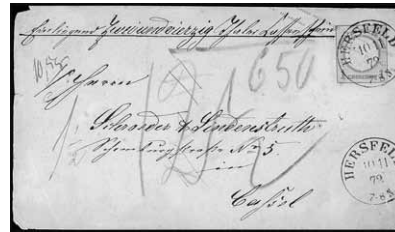 Einliegend Zweiundvierzig Thaler Cassenschein
HERSFELD
10 11
72
650
Herrn
Schroeder & Lindenstruth
No 5.
in
Cassel
HERSFELD
10 11
72
7-8 N